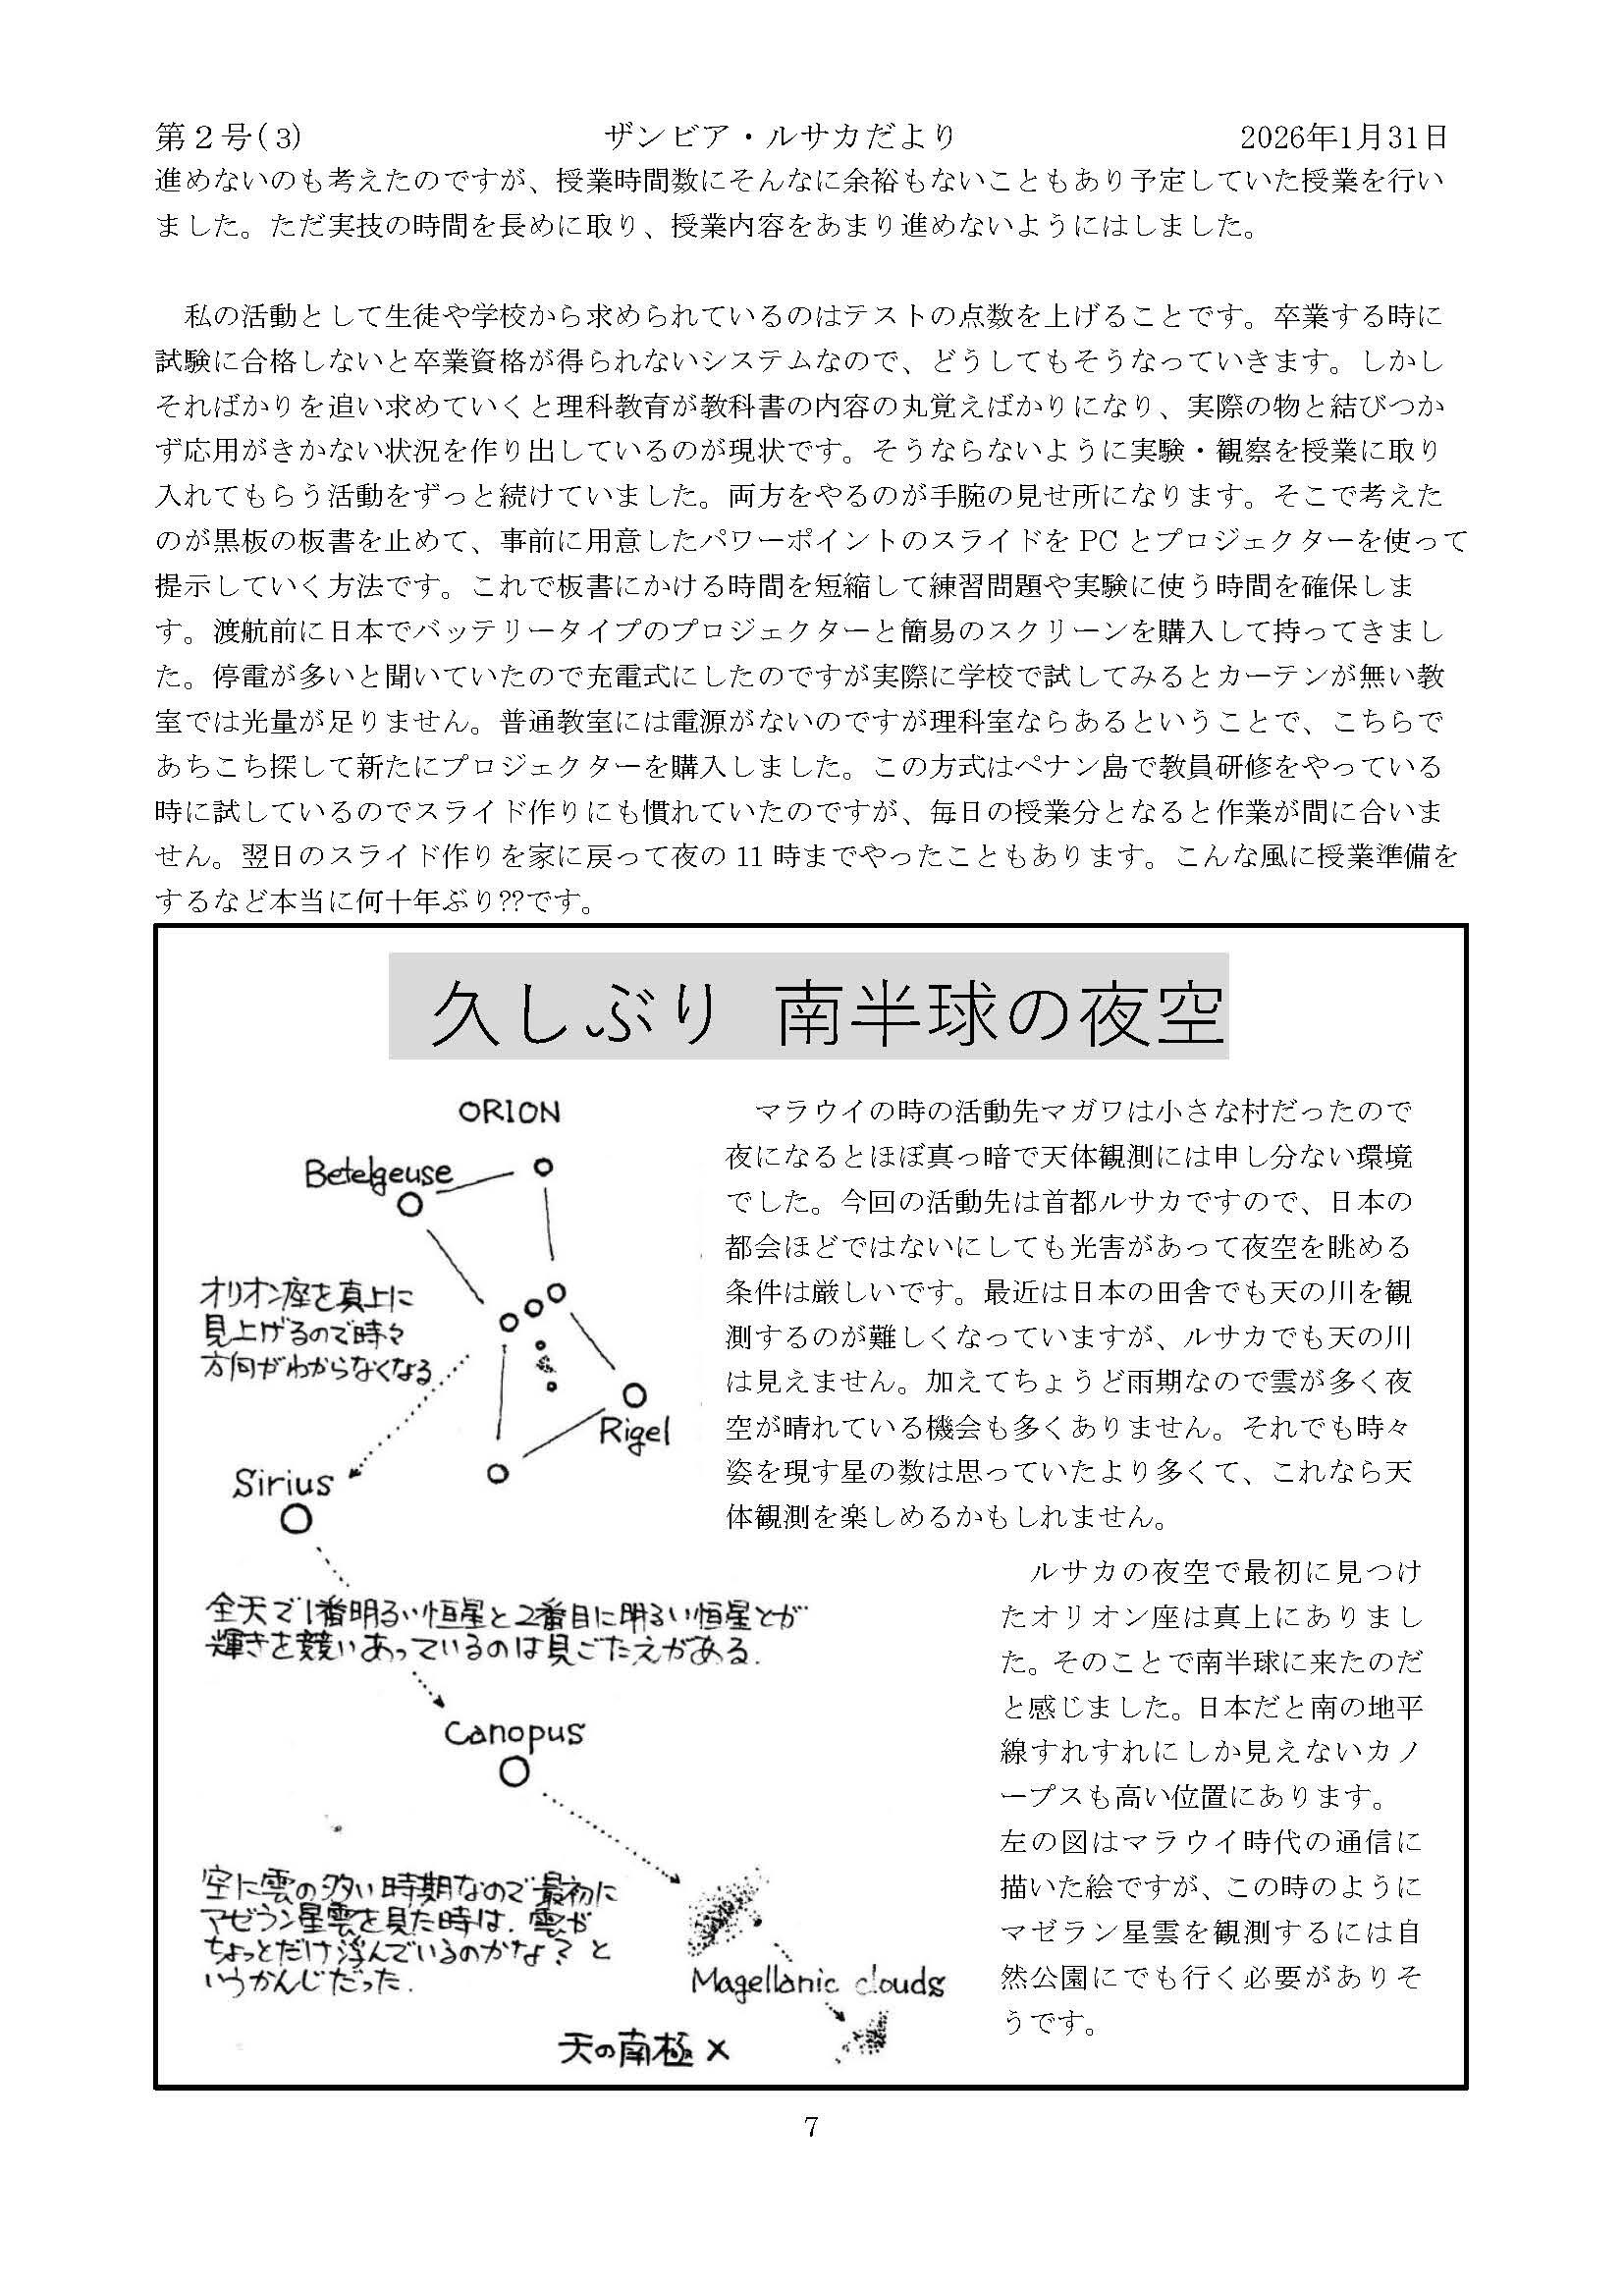 第２号(3)　ザンビア・ルサカだより　2026年1月31日
進めないのも考えたのですが、授業時間数にそんなに余裕もないこともあり予定していた授業を行い
ました。ただ実技の時間を長めに取り、授業内容をあまり進めないようにはしました。
　私の活動として生徒や学校から求められているのはテストの点数を上げることです。卒業する時に
試験に合格しないと卒業資格が得られないシステムなので、どうしてもそうなっていきます。しかし
そればかりを追い求めていくと理科教育が教科書の内容の丸覚えばかりになり、実際の物と結びつか
ず応用がきかない状況を作り出しているのが現状です。そうならないように実験・観察を授業に取り
入れてもらう活動をずっと続けていました。両方をやるのが手腕の見せ所になります。そこで考えた
のが黒板の板書を止めて、事前に用意したパワーポイントのスライドを PC とプロジェクターを使って
提示していく方法です。これで板書にかける時間を短縮して練習問題や実験に使う時間を確保しま
す。渡航前に日本でバッテリータイプのプロジェクターと簡易のスクリーンを購入して持ってきまし
た。停電が多いと聞いていたので充電式にしたのですが実際に学校で試してみるとカーテンが無い教
室では光量が足りません。普通教室には電源がないのですが理科室ならあるということで、こちらで
あちこち探して新たにプロジェクターを購入しました。この方式はペナン島で教員研修をやっている
時に試しているのでスライド作りにも慣れていたのですが、毎日の授業分となると作業が間に合いま
せん。翌日のスライド作りを家に戻って夜の 11 時までやったこともあります。こんな風に授業準備を
するなど本当に何十年ぶり??です。
久しぶり　南半球の夜空
ORION
Betelgeuse
オリオン座を真上に
見上げるので時々
方向がわからなくなる
Rigel
Sirius
全天で1番明るい恒星と2番目に明るい恒星とが
輝きを競いあっているのは見ごたえがある.
Canopus
空に雲の多い時期なので最初に
マゼラン星雲を見た時は、雲が
ちょっとだけ浮んでいるのかな？と
いうかんじだった.
Magellanic clouds
天の南極 ×
　マラウイの時の活動先マガワは小さな村だったので
夜になるとほぼ真っ暗で天体観測には申し分ない環境
でした。今回の活動先は首都ルサカですので、日本の
都会ほどではないにしても光害があって夜空を眺める
条件は厳しいです。最近は日本の田舎でも天の川を観
測するのが難しくなっていますが、ルサカでも天の川
は見えません。加えてちょうど雨期なので雲が多く夜
空が晴れている機会も多くありません。それでも時々
姿を現す星の数は思っていたより多くて、これなら天
体観測を楽しめるかもしれません。
　ルサカの夜空で最初に見つけ
たオリオン座は真上にありまし
た。そのことで南半球に来たのだ
と感じました。日本だと南の地平
線すれすれにしか見えないカノ
ープスも高い位置にあります。
左の図はマラウイ時代の通信に
描いた絵ですが、この時のように
マゼラン星雲を観測するには自
然公園にでも行く必要がありそ
うです。
7